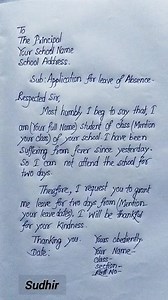 To
The Principal
Your School Name
School Address.
Sub: Application for leave of Absence-
Respected Sir,
Most humbly I beg to say that, I
am (Your full Name) student of class (Mention
your class) of your school I have been
Suffering from fever since yesterday.
So I can not attend the school for
two days.
Therefore, I request you to grant
me leave for two days from (Mention
your leave date), I will be thankful
for your kindness.
Thanking you. Yours obediently.
Date: Your Name-
class-
section-
Roll No-
Sudhir